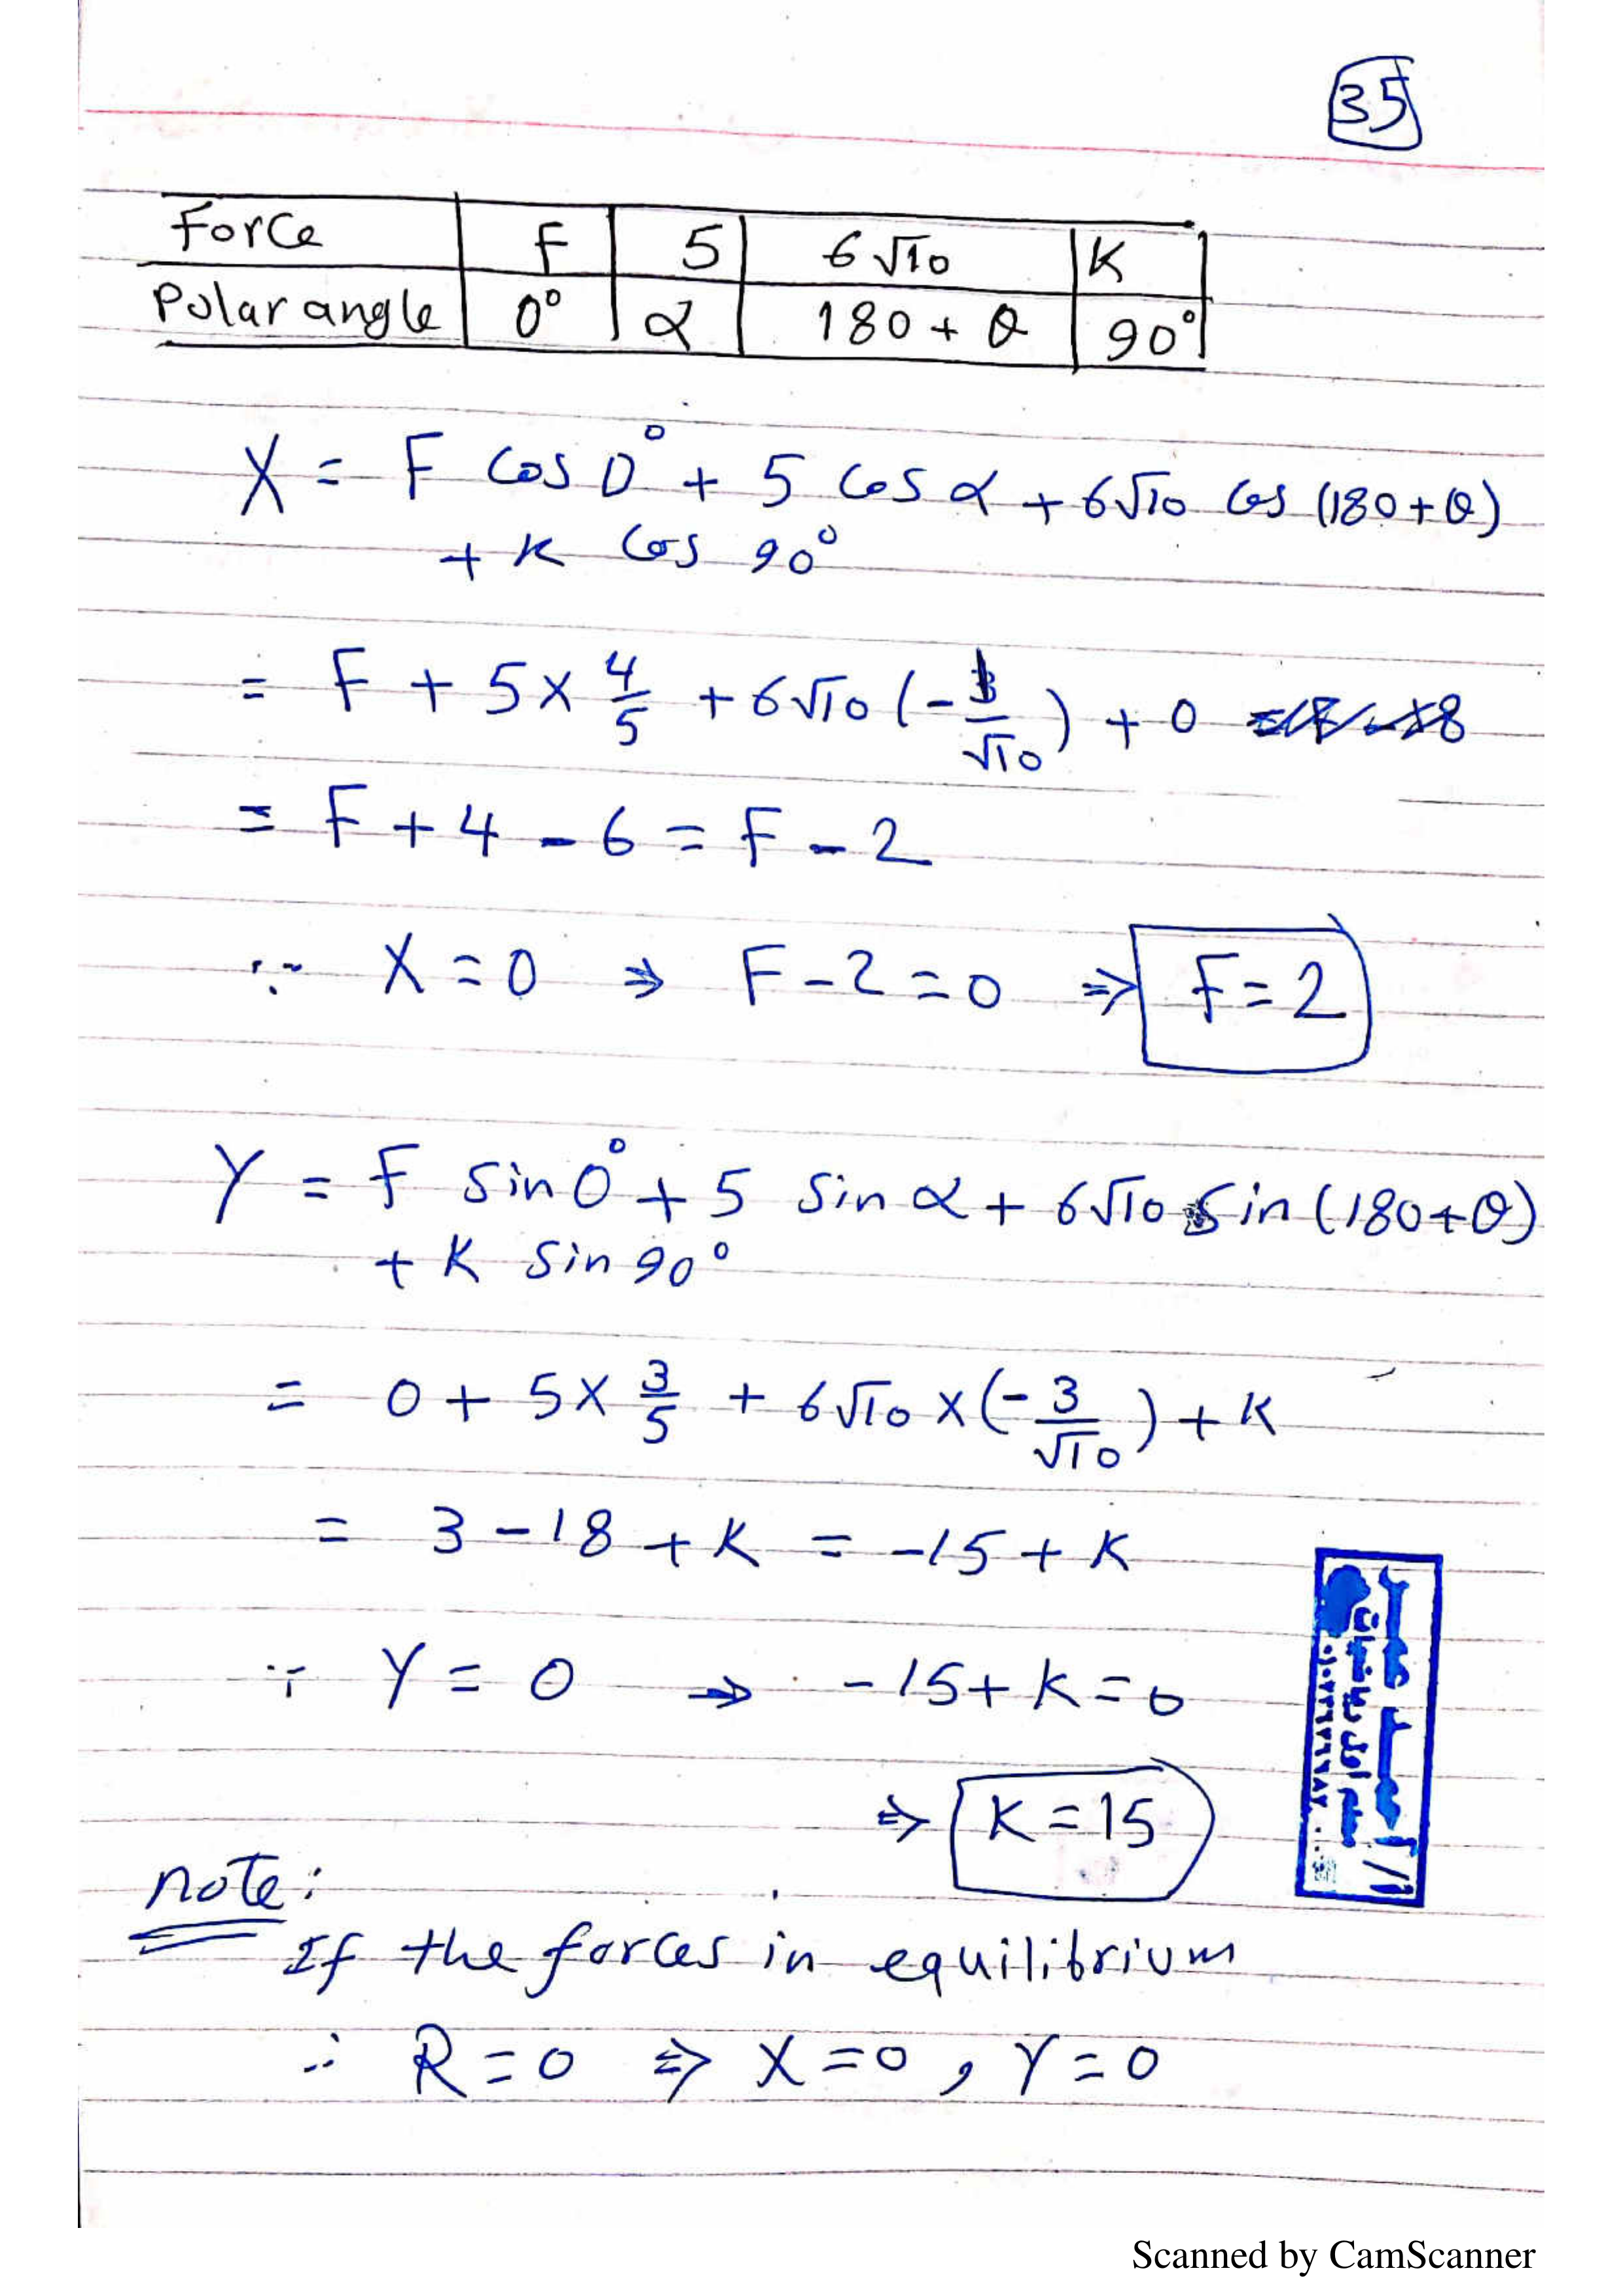 35
Force F 5 6√10 K
Polar angle 0° α 180 + θ 90°
X = F Cos 0° + 5 Cos α + 6√10 Cos (180 + θ)
+ K Cos 90°
= F + 5 × 4/5 + 6√10 (- 1/√10) + 0
= F + 4 - 6 = F - 2
∵ X = 0 ⇒ F - 2 = 0 ⇒ F = 2
Y = F Sin 0° + 5 Sin α + 6√10 Sin (180 + θ)
+ K Sin 90°
= 0 + 5 × 3/5 + 6√10 × (- 3/√10) + K
= 3 - 18 + K = -15 + K
∵ Y = 0 ⇒ -15 + K = 0
⇒ K = 15
note:
If the forces in equilibrium
∴ R = 0 ⇒ X = 0 , Y = 0
Scanned by CamScanner